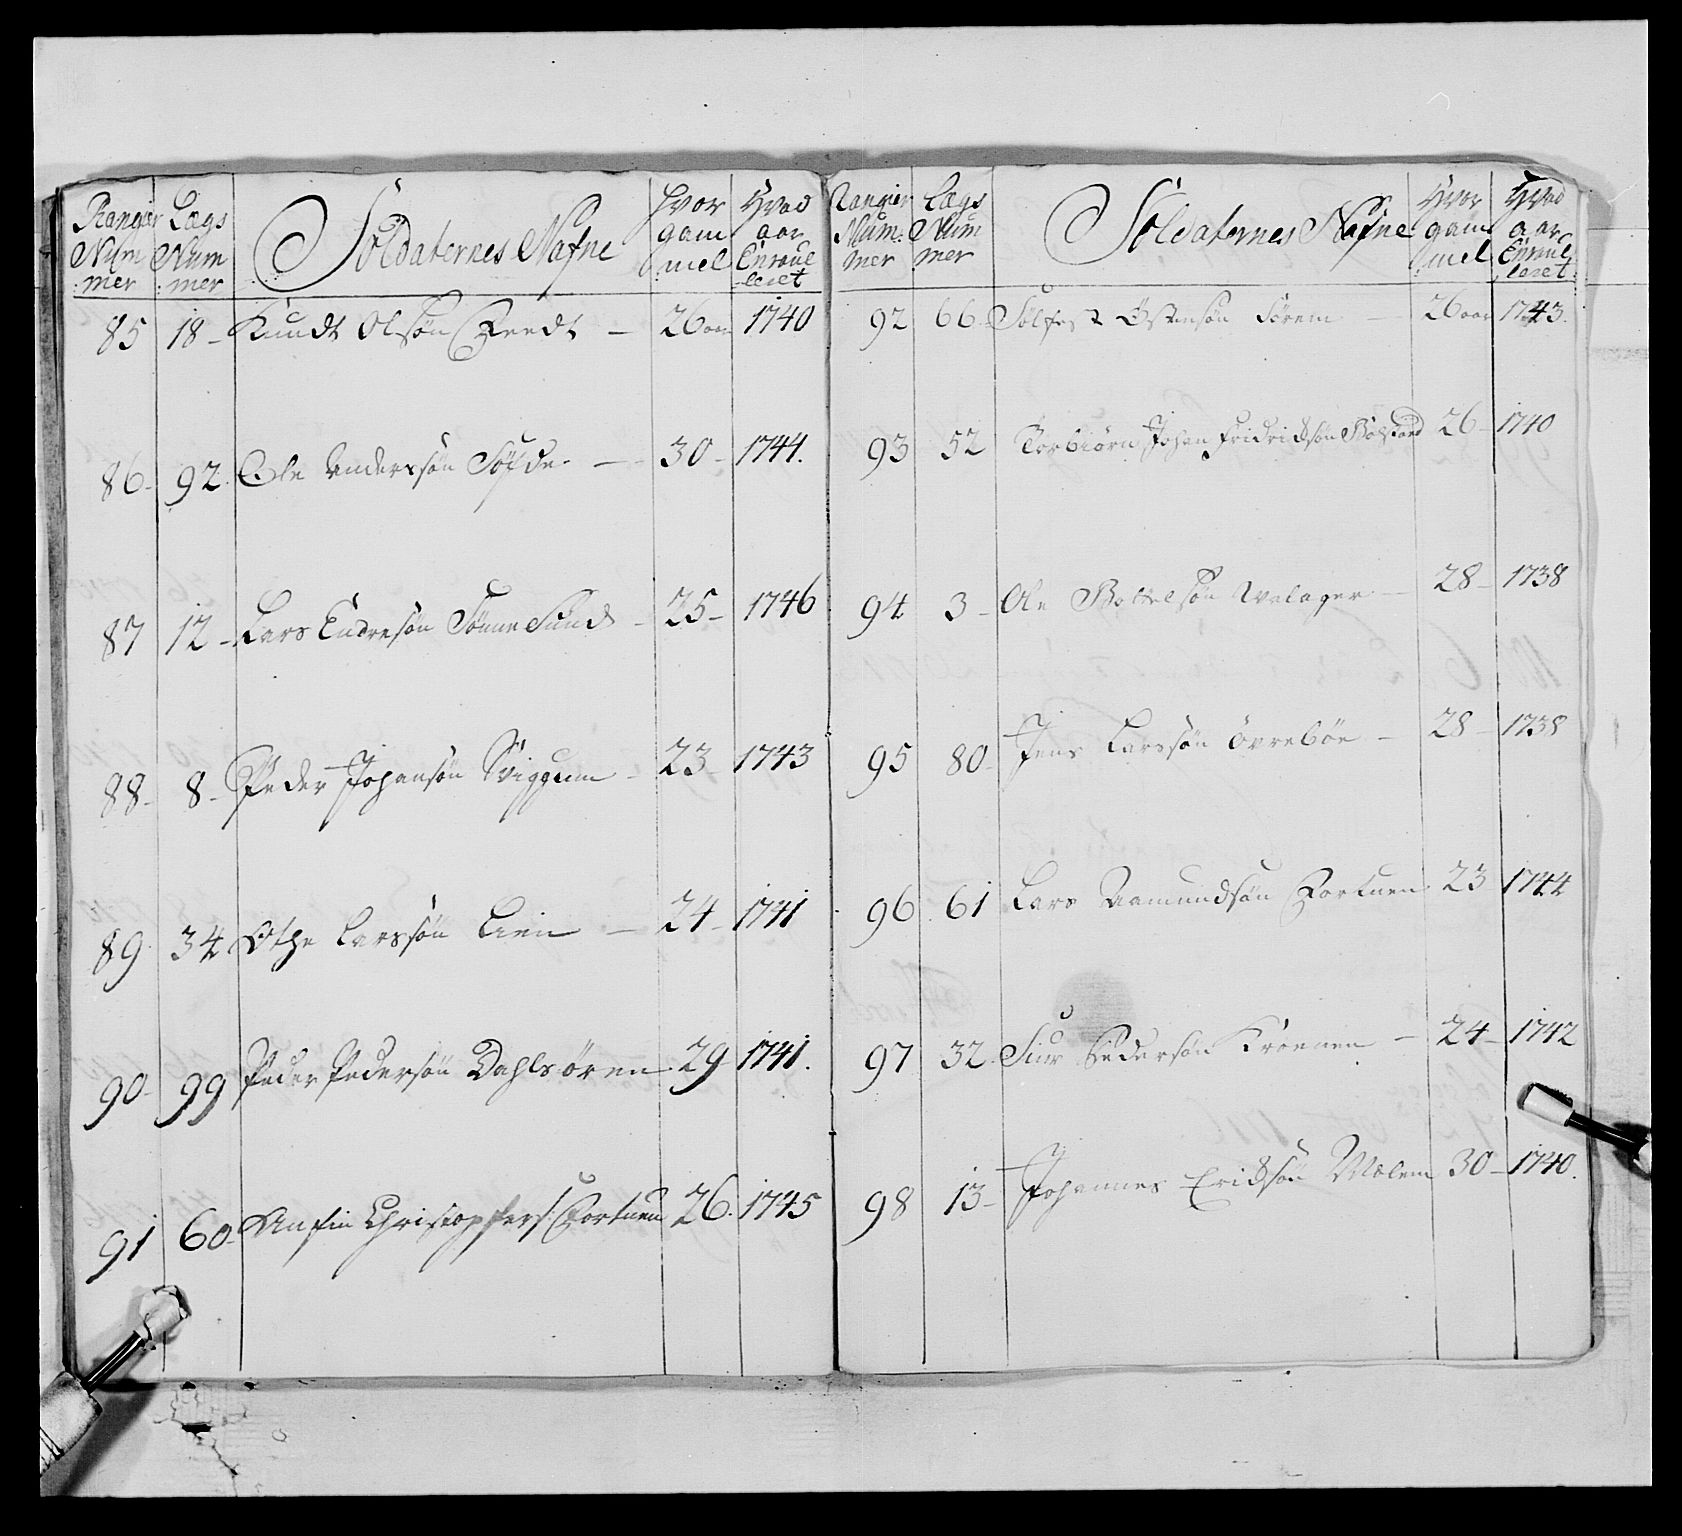 Rangier Num mer | Lægs Num mer | Soldaternes Nafne | Hvor gam mel | Hvad aar Enroul leret
85 | 18 - | Knudt Olsøn Eredt - | 26 aar | 1740
86 - | 92. | Ole Anderssøn - | 30 - | 1744.
87 | 12 - | Lars Endresøn Sønnesund - | 25 - | 1746
88 - | 8 - | Peder Johansøn Viggum - | 23 - | 1743
89 | 34 | Othe Larssøn Lien - | 24 - | 1741
90 - | 99 | Peder Pedersøn Dahlsøren | 29 | 1741.
91 | 60 - | Anfin Christophers: Fortuen | 26. | 1745
Rangier Num: mer | Lægs Num mer | Soldaternes Nafne | Hvor gam mel | Hvad aar Enroul leret
92 | 66 - | Sølfest Østensøn Sørem - | 26 aar | 1743.
93 | 52 | Torbiørn Johan Fridricksøn Bolstad | 26 - | 1740
94 | 3 - | Ole Bottelsøn - | 28 - | 1738
95 | 80 - | Jens Larssøn Øvrebøe - | 28 - | 1738
96 | 61 | Lars Aamundsøn Fortuen | 23 | 1744
97 | 32. | Siur Pedersøn Kroenen - | 24 - | 1742
98 | 13 - | Johannes Ericksøn Mælem | 30 - | 1740.